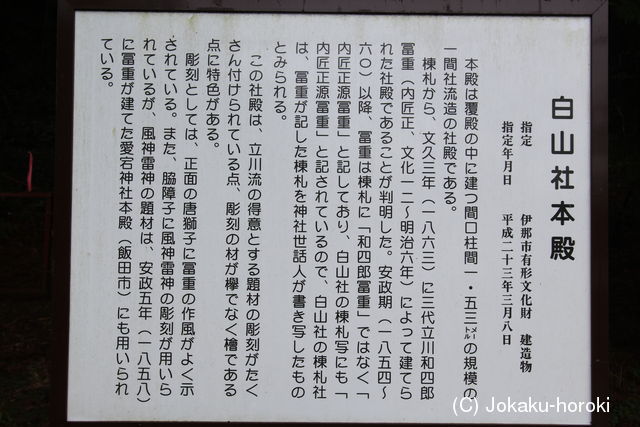 白山社本殿
指定　伊那市有形文化財　建造物
指定年月日　平成二十三年三月八日
本殿は覆殿の中に建つ間口柱間一・五三メートルの規模の
一間社流造の社殿である。
棟札から、文久三年（一八六三）に三代立川和四郎
冨重（内匠正、文化一二～明治六年）によって建てら
れた社殿であることが判明した。安政期（一八五四～
六〇）以降、冨重は棟札に「和四郎冨重」ではなく「
内匠正源冨重」と記しており、白山社の棟札写にも「
内匠正源冨重」と記されているので、白山社の棟札社
は、冨重が記した棟札を神社世話人が書き写したもの
とみられる。
この社殿は、立川流の得意とする題材の彫刻がたく
さん付けられている点、彫刻の材が欅でなく檜である
点に特色がある。
彫刻としては、正面の唐獅子に冨重の作風がよく示
されている。また、脇障子に風神雷神の彫刻が用いら
れているが、風神雷神の題材は、安政五年（一八五八）
に冨重が建てた愛宕神社本殿（飯田市）にも用いられ
ている。
(C) Jokaku-horoki